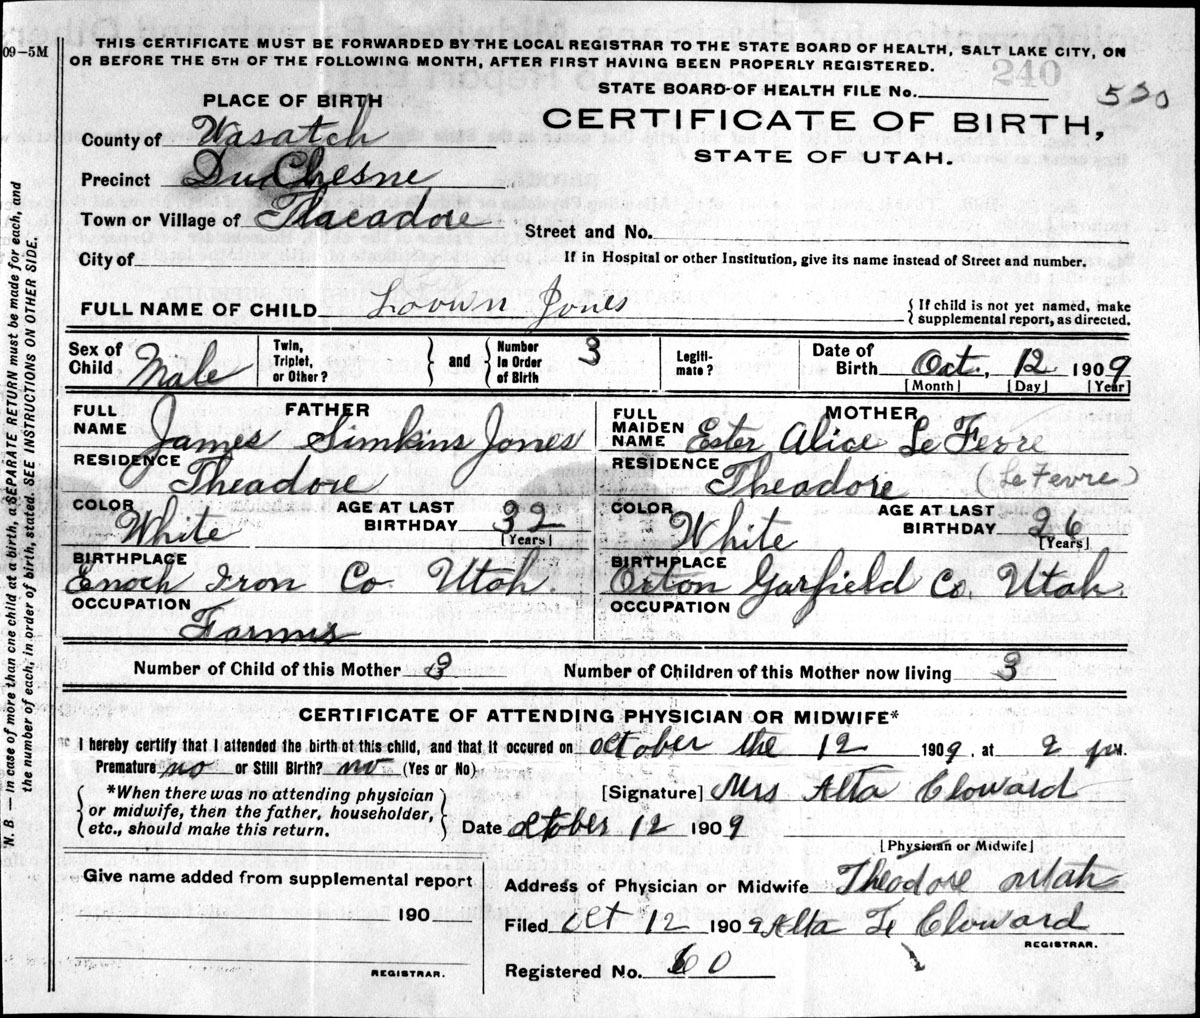 09–5M
THIS CERTIFICATE MUST BE FORWARDED BY THE LOCAL REGISTRAR TO THE STATE BOARD OF HEALTH, SALT LAKE CITY, ON
OR BEFORE THE 5TH OF THE FOLLOWING MONTH, AFTER FIRST HAVING BEEN PROPERLY REGISTERED.
240
STATE BOARD OF HEALTH FILE No. 520
PLACE OF BIRTH
CERTIFICATE OF BIRTH,
STATE OF UTAH.
County of Wasatch
Precinct DuChesne
Town or Village of
Street and No.
City of
If in Hospital or other Institution, give its name instead of Street and number.
FULL NAME OF CHILD Jones
{ If child is not yet named, make
supplemental report, as directed.
Sex of Child Male
Twin, Triplet, or Other? } and { Number in Order of Birth 3
Legiti-mate?
Date of Birth Oct. 12 1909
[Month] [Day] [Year]
FATHER
FULL NAME James Simkins Jones
RESIDENCE Theadore
COLOR White
AGE AT LAST BIRTHDAY 32
[Years]
BIRTHPLACE
Enoch Iron Co. Utah.
OCCUPATION
MOTHER
FULL MAIDEN NAME Ester Alice Le Fevre
RESIDENCE Theadore (Le Fevre)
COLOR White
AGE AT LAST BIRTHDAY 26
[Years]
BIRTHPLACE
Orton Garfield Co. Utah.
OCCUPATION
Number of Child of this Mother 3
Number of Children of this Mother now living 3
CERTIFICATE OF ATTENDING PHYSICIAN OR MIDWIFE*
I hereby certify that I attended the birth of this child, and that it occured on october the 12 1909, at 2 pm.
Premature no or Still Birth? no (Yes or No)
{ *When there was no attending physician
or midwife, then the father, householder,
etc., should make this return. }
[Signature] Mrs Alta Cloward
Date october 12 1909
[Physician or Midwife]
Give name added from supplemental report
190
REGISTRAR.
Address of Physician or Midwife Theodore utah
Filed Oct 12 1909 Alta Cloward
REGISTRAR.
Registered No. 60
N. B — In case of more than one child at a birth, a SEPARATE RETURN must be made for each, and
the number of each, in order of birth, stated. SEE INSTRUCTIONS ON OTHER SIDE.